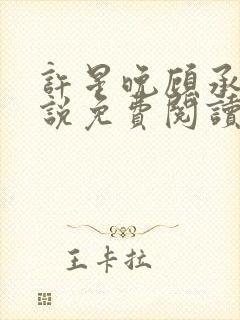 許星晚顧承
說免費閱讀
王卡拉